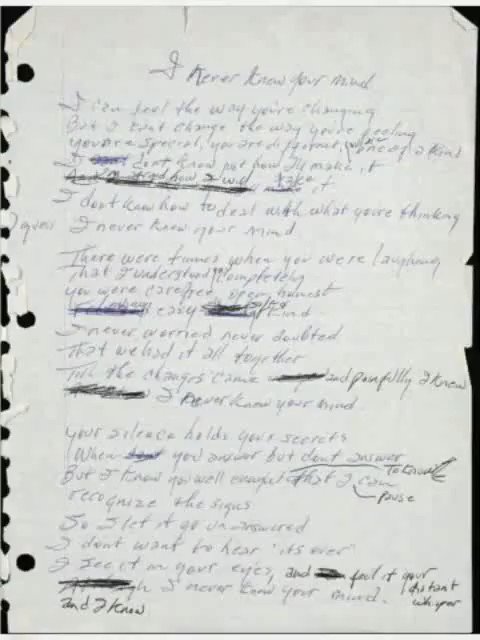 I Never Knew your mind
I can feel the way you're changing
But I cant change the way you're feeling
you are special, you are different, one of a kind
I dont know just how I'll make it
take it
I dont know how to deal with what you're thinking
I guess I never knew your mind
There were times when you were laughing
That I understood completely
you were carefree, open, honest
easy kind
I never worried never doubted
That we had it all together
Till the changes came and painfully I knew
I Never knew your mind
your silence holds your secrets
When you answer but dont answer
To Know
But I know you well enough that I can
pause
recognize the signs
So I let it go unanswered
I dont want to hear "its over"
I see it in your eyes, and feel it your
distant
I never knew your mind.
whisper
and I know